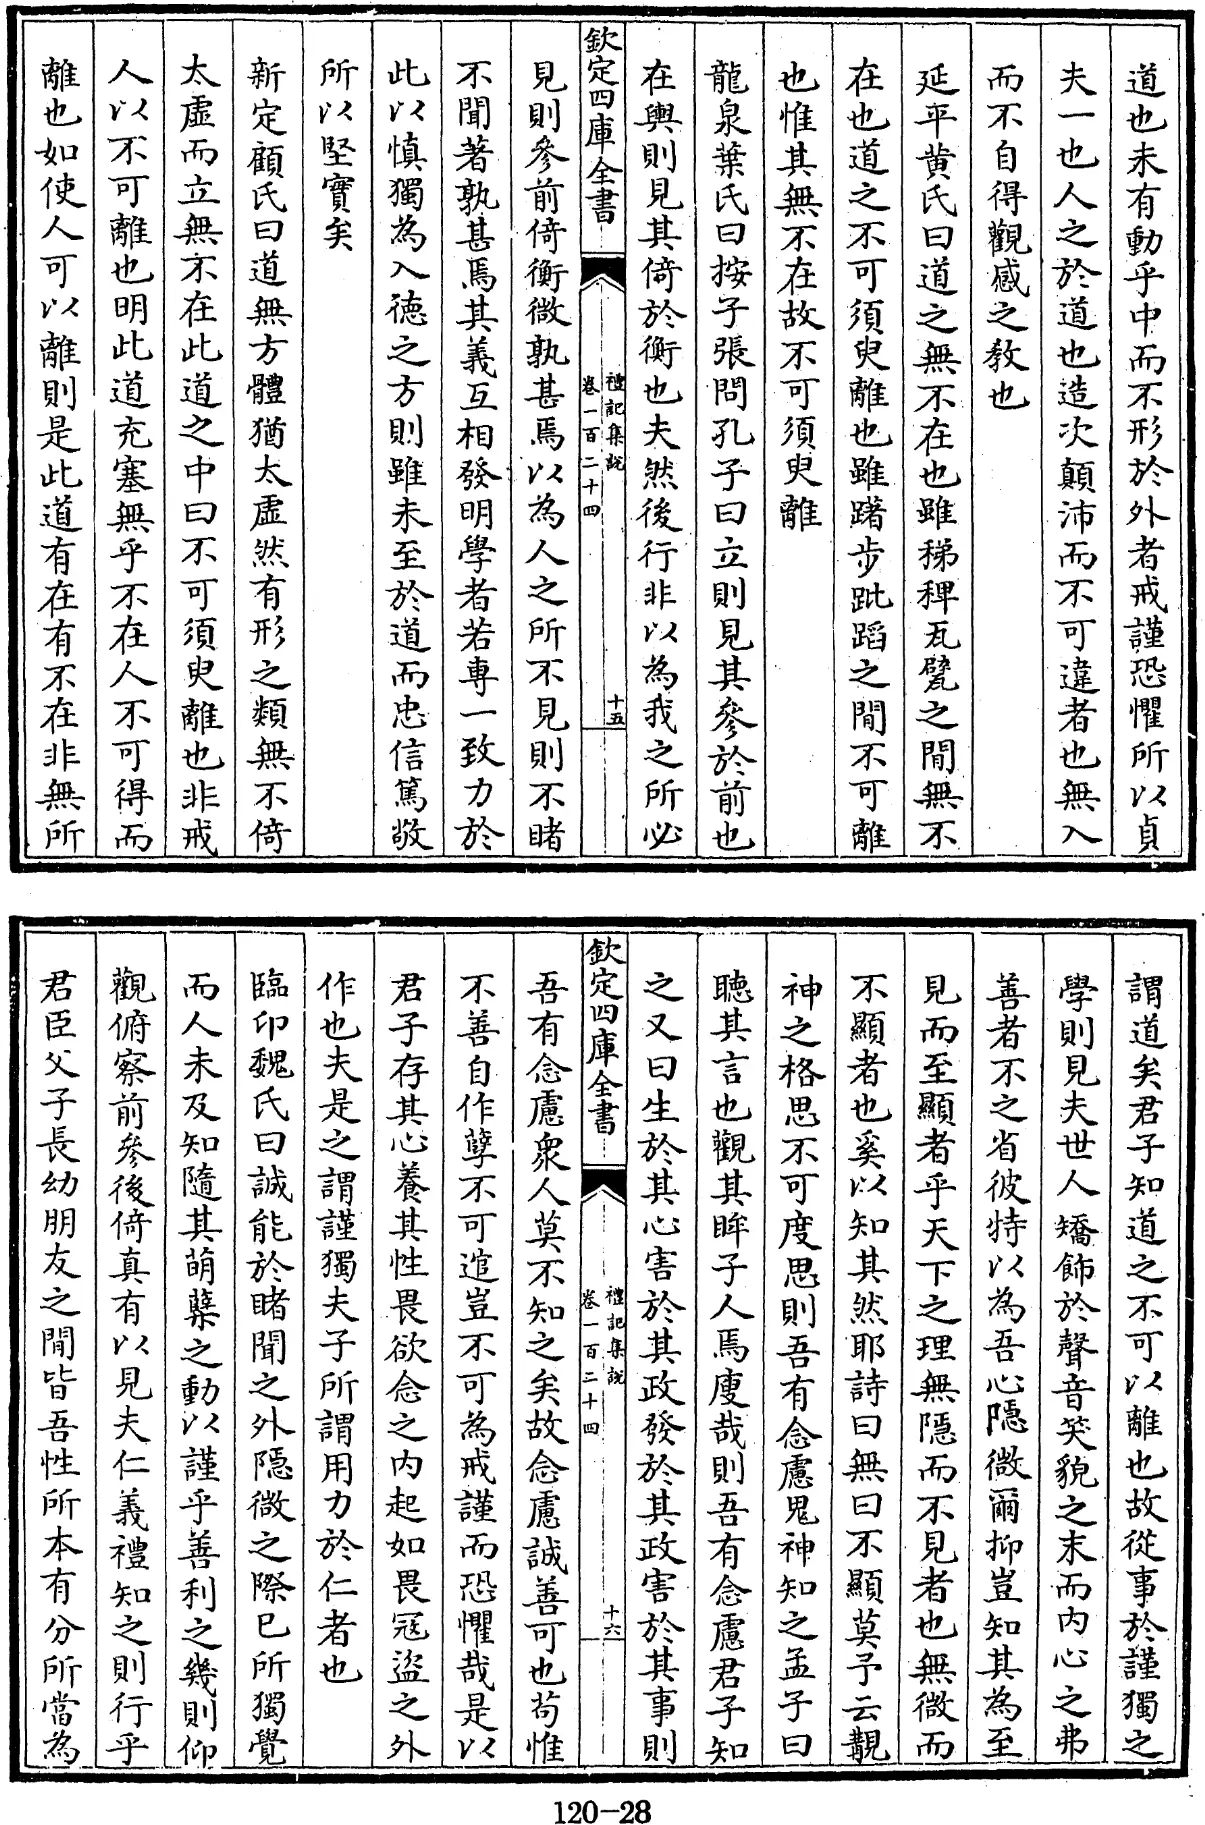 道也未有動乎中而不形於外者戒謹恐懼所以貞
夫一也人之於道也造次顛沛而不可違者也無入
而不自得觀感之教也
延平黄氏曰道之無不在也雖稊稗瓦甓之間無不
在也道之不可須臾離也雖躇步跐蹈之間不可離
也惟其無不在故不可須臾離
龍泉葉氏曰按子張問孔子曰立則見其參於前也
在輿則見其倚於衡也夫然後行非以為我之所必
欽定四庫全書
禮記集說
卷一百二十四
十五
見則參前倚衡微孰甚焉以為人之所不見則不睹
不聞著孰甚焉其義互相發明學者若専一致力於
此以慎獨為入德之方則雖未至於道而忠信篤敬
所以堅實矣
新定顧氏曰道無方體猶太虛然有形之類無不倚
太虛而立無不在此道之中曰不可須臾離也非戒
人以不可離也明此道充塞無乎不在人不可得而
離也如使人可以離則是此道有在有不在非無所
謂道矣君子知道之不可以離也故從事於謹獨之
學則見夫世人矯飾於聲音笑貌之末而内心之弗
善者不之省彼特以為吾心隱微爾抑豈知其為至
見而至顯者乎天下之理無隱而不見者也無微而
不顯者也奚以知其然耶詩曰無曰不顯莫予云覯
神之格思不可度思則吾有念慮鬼神知之孟子曰
聽其言也觀其眸子人焉廋哉則吾有念慮君子知
之又曰生於其心害於其政發於其政害於其事則
欽定四庫全書
禮記集說
卷一百二十四
十六
吾有念慮衆人莫不知之矣故念慮誠善可也茍惟
不善自作孽不可逭豈不可為戒謹而恐懼哉是以
君子存其心養其性畏欲念之内起如畏冦盜之外
作也夫是之謂謹獨夫子所謂用力於仁者也
臨卭魏氏曰誠能於睹聞之外隱微之際已所獨覺
而人未及知隨其萌蘖之動以謹乎善利之幾則仰
觀俯察前參後倚真有以見夫仁義禮知之則行乎
君臣父子長幼朋友之間皆吾性所本有分所當為
120-28